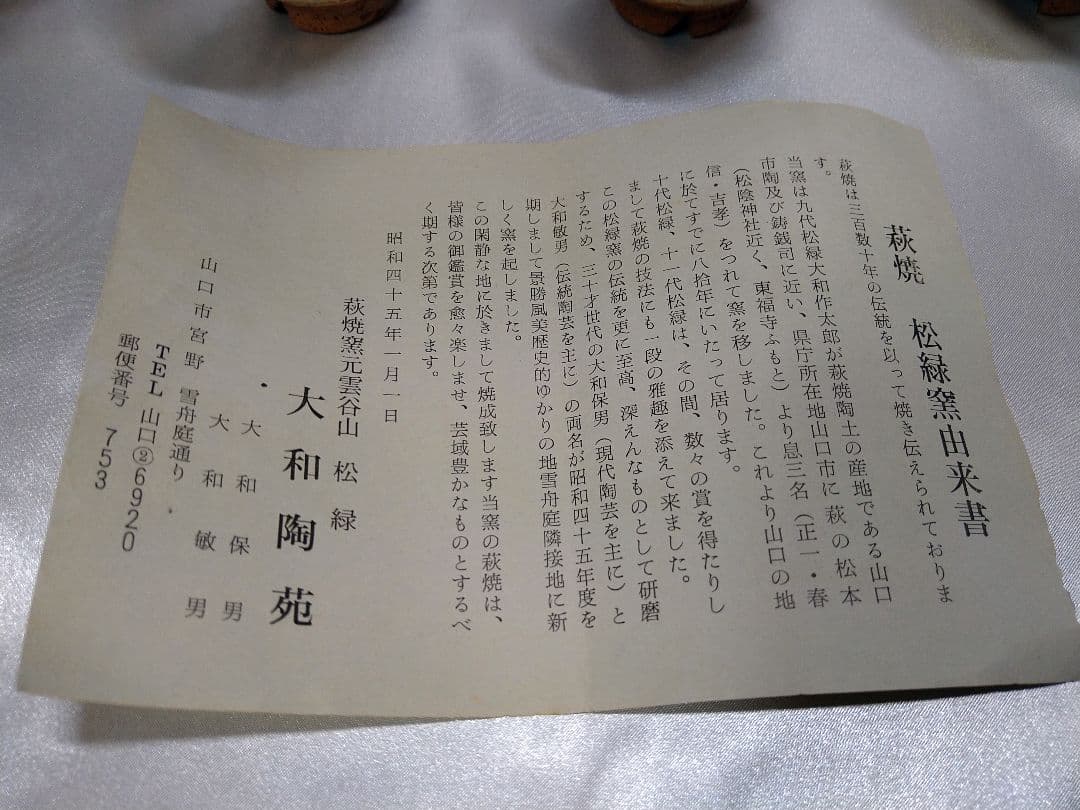 萩焼 松緑窯由来書
萩焼は三百数十年の伝統を以って焼き伝えられておりま
す。
当窯は九代松緑大和作太郎が萩焼陶土の産地である山口
市陶及び鋳銭司に近い、県庁所在地山口市に萩の松本
(松陰神社近く、東福寺ふもと)より息三名(正一・春
信・吉孝)をつれて窯を移しました。これより山口の地
に於てすでに八拾年にいたって居ります。
十代松緑、十一代松緑は、その間、数々の賞を得たりし
まして萩焼の技法にも一段の雅趣を添えて来ました。
この松緑窯の伝統を更に至高、深えんなものとして研磨
するため、三十才世代の大和保男(現代陶芸を主に)と
大和敏男(伝統陶芸を主に)の両名が昭和四十五年度を
期しまして景勝風美歴史的ゆかりの地雪舟庭隣接地に新
しく窯を起しました。
この閑静な地に於きまして焼成致します当窯の萩焼は、
皆様の御鑑賞を愈々楽しませ、芸域豊かなものとするべ
く期する次第であります。
昭和四十五年一月一日
萩焼窯元雲谷山 松緑
大和陶苑
大和保男
大和敏男
山口市宮野 雪舟庭通り
TEL 山口②6920
郵便番号 753